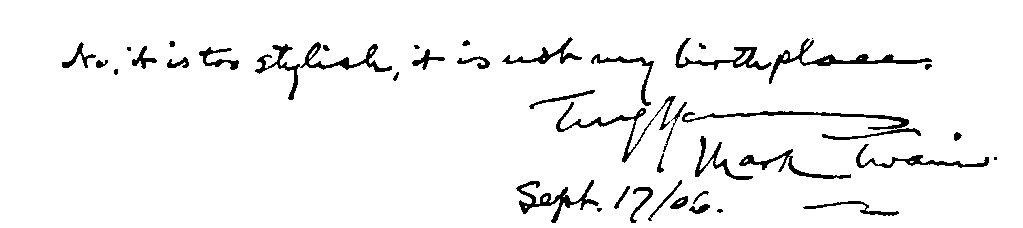 No, it is too stylish, it is not my birthplace.
Truly Yours
Mark Twain.
Sept. 17/06.